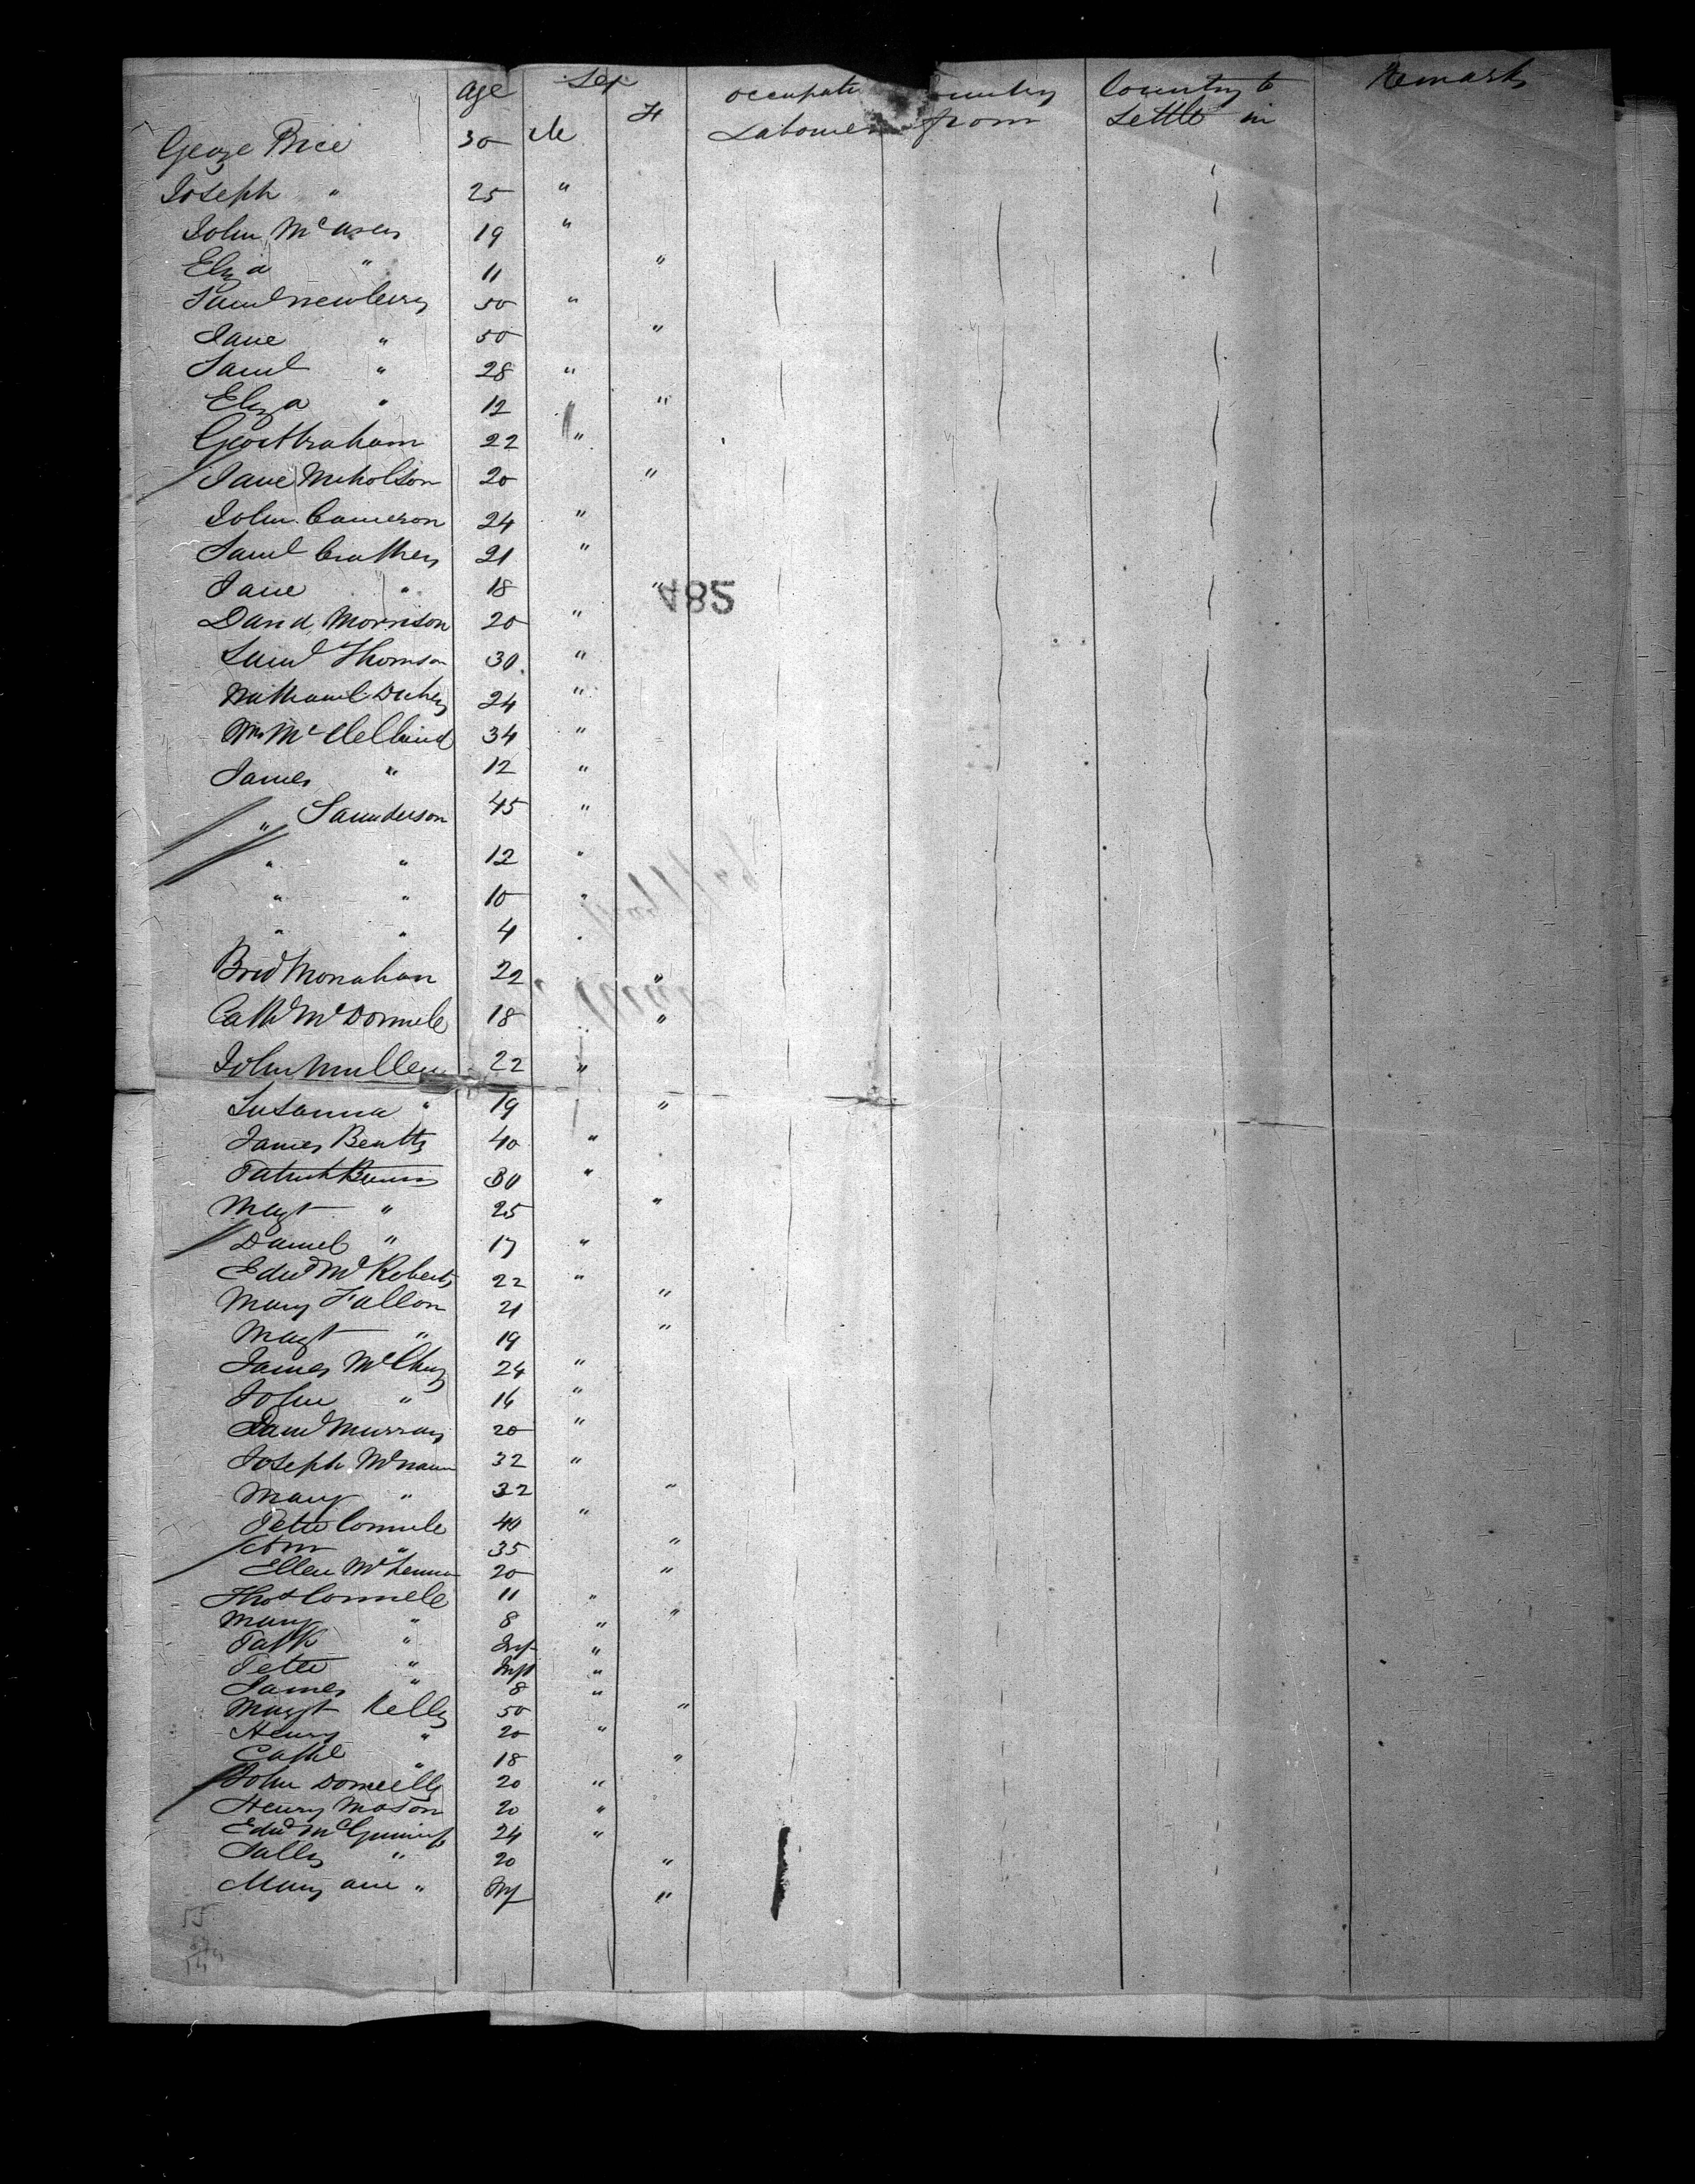 Age Sex Occupatn Country Country to Remarks
F from Settle in
George Price 30 M Labourer
Joseph " 25 "
John McAvery 19 "
Eliza " 11 "
Saml Newberry 50 "
Jane " 50 "
Saml " 28 "
Eliza " 12 "
Geo Graham 22 "
Jane Nicholson 20 "
John Cameron 24 "
Saml Crothers 21 "
Jane " 18 "
482
David Morrison 20 "
Saml Thomson 30 "
Nathaniel 24 "
Wm McClelland 34 "
James " 12 "
" Saunderson 45 "
" " 12 "
" " 10 "
" " 4 "
Brid Monahan 22 "
Cath McDonnell 18 "
John Mullen 22 "
Susanna " 19 "
James Beatty 40 "
Patrick 30 "
Magt " 25 "
Daniel " 17 "
Edwd McRoberts 22 "
Mary Fallon 21 "
Magt " 19 "
James McClurg 24 "
John " 16 "
Saml Murray 20 "
Joseph 32 "
Mary " 32 "
Peter Connele 40 "
Ann " 35 "
Ellen 20 "
Thos Connele 11 "
Mary " 8 " "
Patk " Inf "
Peter " Inft "
James " 8 "
Margt Kelly 50 "
Henry " 20 "
Cathe " 18 "
John Donnelly 20 "
Henry Mason 20 "
Edwd McGuiness 24 "
Sally " 20 "
Mary ann " Inf "